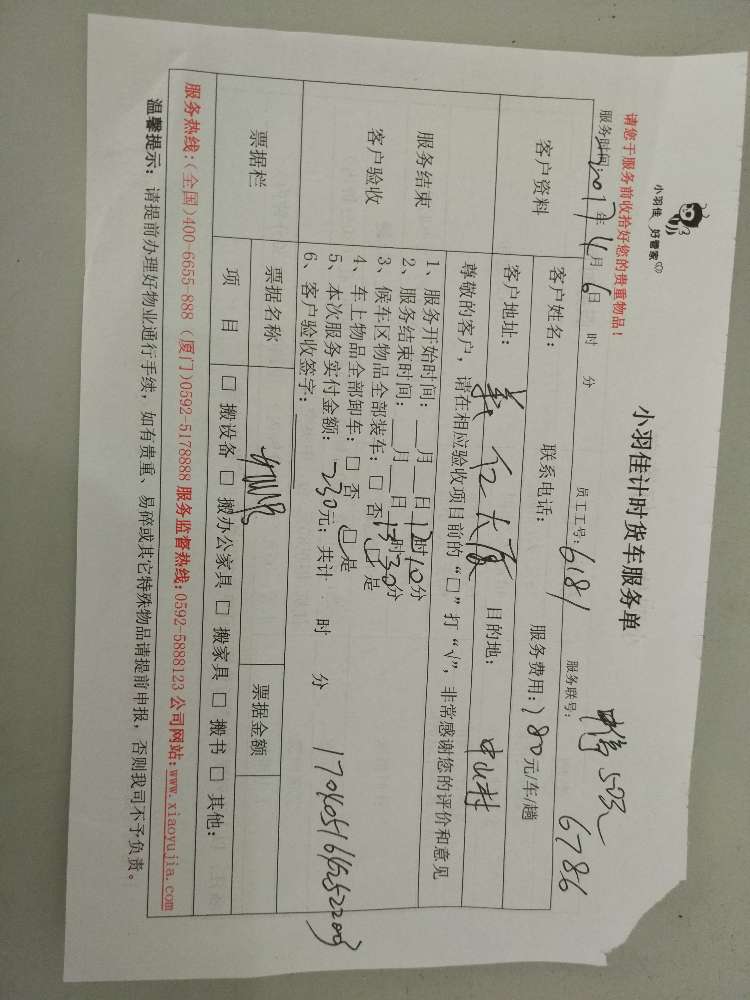 小羽佳 好管家
小羽佳计时货车服务单
请您于服务前收拾好您的贵重物品！
服务时间：2017年4月6日 时 分 员工工号：6181 服务联号： 6786
客户资料 客户姓名： 联系电话： 服务费用：180元/车/趟
客户地址： 大厦 目的地：中山村
尊敬的客户，请在相应验收项目前的“□”打“√”，非常感谢您的评价和意见
服务结束
客户验收
1、服务开始时间：__月__日12时10分
2、服务结束时间：__月__日13时30分
3、候车区物品全部装车：□ 否 □ 是
4、车上物品全部卸车：□ 否 □ 是
5、本次服务实付金额：230元；共计 时 分
6、客户验收签字：________
票据栏 票据名称 票据金额
项 目 □ 搬设备 □ 搬办公家具 □ 搬家具 □ 搬书 □ 其他：
服务热线：（全国）400-6655-888（厦门）0592-5178888 服务监督热线：0592-5888123 公司网站：www.xiaoyujia.com
温馨提示：请提前办理好物业通行手续，如有贵重、易碎或其它特殊物品请提前申报，否则我司不予负责。